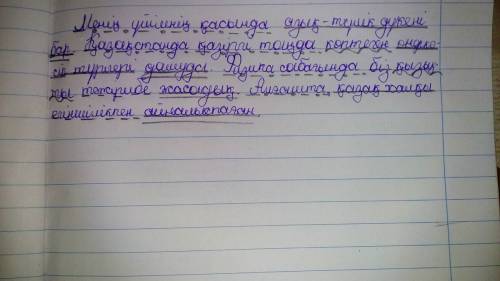 Менің үйімнің қасында азық-түлік дүкені
бар. Қазақстанда қазіргі таңда көптеген өндіріс-
түрлері дамуда. Физика сабағында біз қызық-
ты тәжірибе жасадық. Алғашта, қазақ халқы
егіншілікпен айналыспаған.